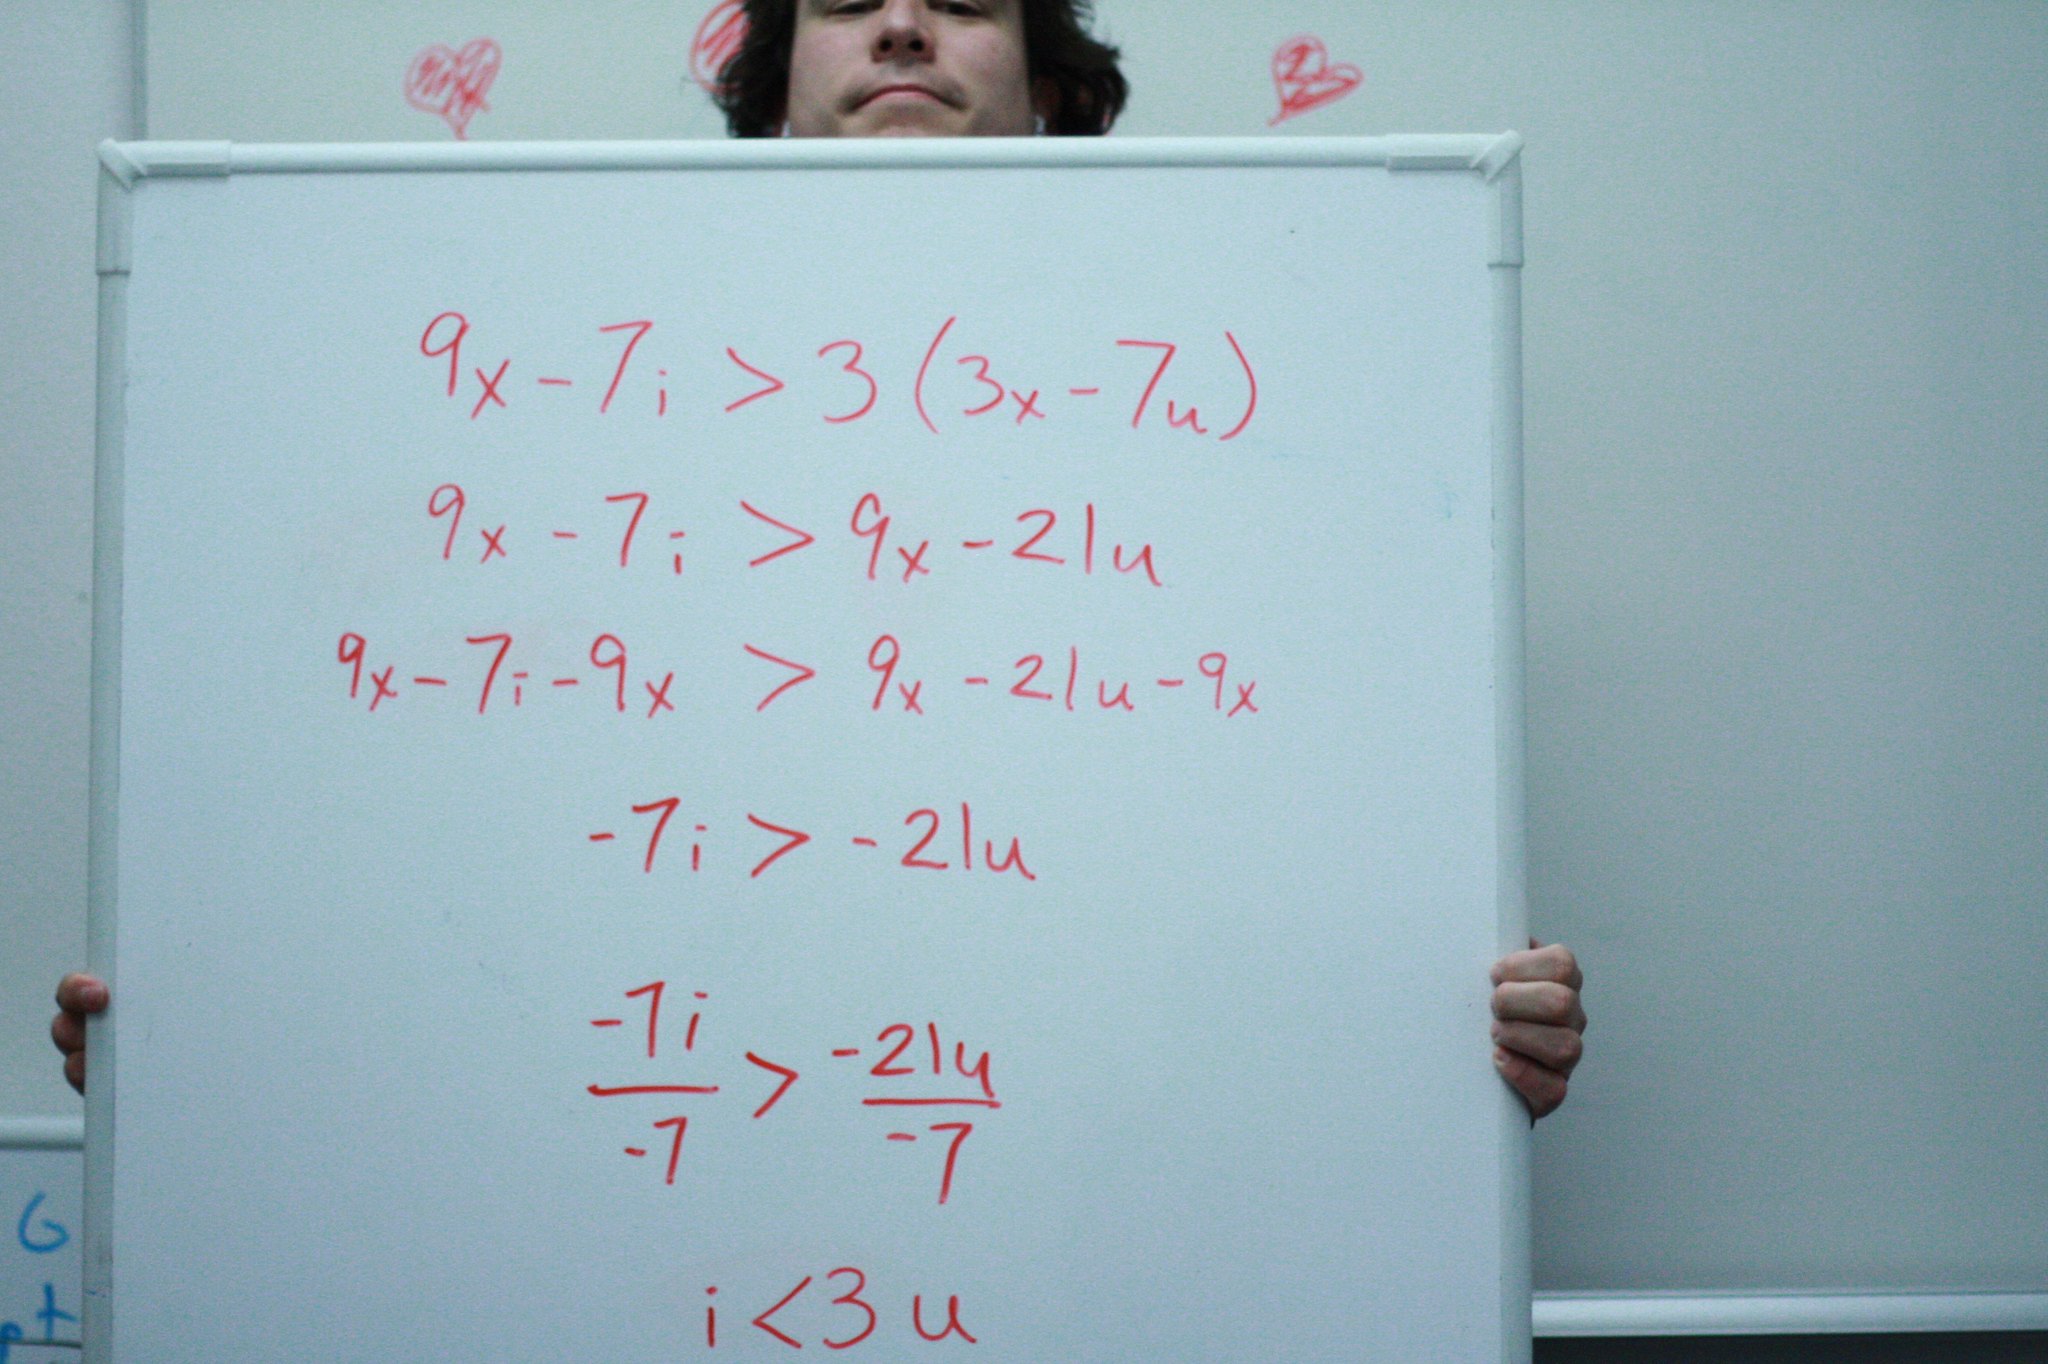 9x - 7i > 3(3x - 7u)
9x - 7i > 9x - 21u
9x - 7i - 9x > 9x - 21u - 9x
-7i > -21u
-7i/-7 > -21u/-7
i < 3u
G